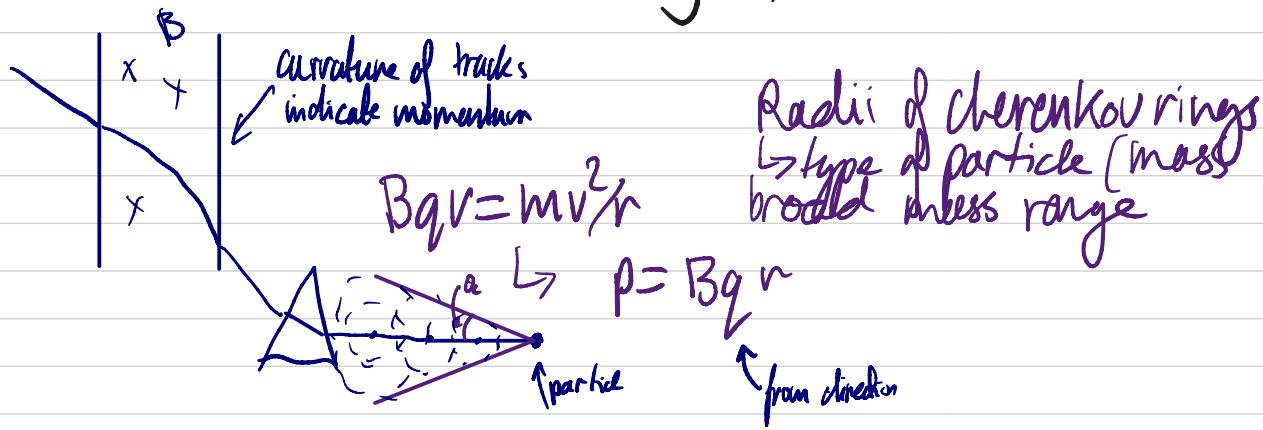 B
x
x
x
curvature of tracks
indicate momentum
Radii of cherenkov rings
↳ type of particle (mass
broad mass range
Bqv = mv²/r
↳ p = Bqr
a
particle
from direction